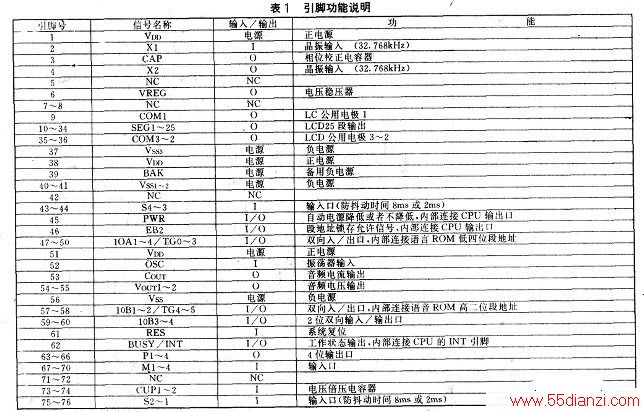 表 1 引脚功能说明
引脚号 信号名称 输入/输出 功 能
1 VDD 电源 正电源
2 X1 I 晶振输入 (32.768kHz)
3 CAP O 相位校正电容器
4 X2 O 晶振输入 (32.768kHz)
5 NC NC
6 VREG O 电压稳压器
7~8 NC NC
9 COM1 O LC公用电极1
10~34 SEG1~25 O LCD25段输出
35~36 COM3~2 O LCD公用电极3~2
37 VSS3 电源 负电源
38 VDD 电源 正电源
39 BAK 电源 备用负电源
40~41 VSS1~2 电源 负电源
42 NC NC
43~44 S4~3 I 输入口(防抖动时间8ms或2ms)
45 PWR I/O 自动电源降低或者不降低,内部连接CPU输出口
46 EB2 I/O 段地址锁存允许信号,内部连接CPU输出口
47~50 1OA1~4/TG0~3 I/O 双向入/出口,内部连接语言ROM低四位段地址
51 VDD 电源 正电源
52 OSC I 振荡器输入
53 COUT O 音频电流输出
54~55 VOUT1~2 O 音频电压输出
56 VSS 电源 负电源
57~58 10B1~2/TG4~5 I/O 双向入/出口,内部连接语音ROM高二位段地址
59~60 10B3~4 I/O 2位双向输入/输出口
61 RES I 系统复位
62 BUSY/INT I/O 工作状态输出,内部连接CPU的INT引脚
63~66 P1~4 O 4位输出口
67~70 M1~4 I 输入口
71~72 NC NC
73~74 CUP1~2 I 电压倍压电容器
75~76 S2~1 I 输入口(防抖动时间8ms或2ms)
www.55dianzi.com